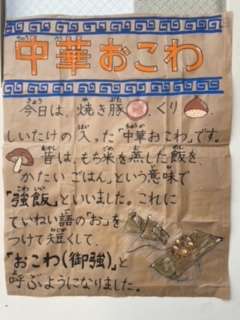 中華おこわ
今日は、焼き豚 くり
しいたけの入った「中華おこわ」です。
昔は、もち米を蒸した飯を、
かたいごはん」という意味で
「強飯」といいました。これに
ていねい語の「お」を
つけて短くして、
「おこわ(御強)」と
呼ぶようになりました。